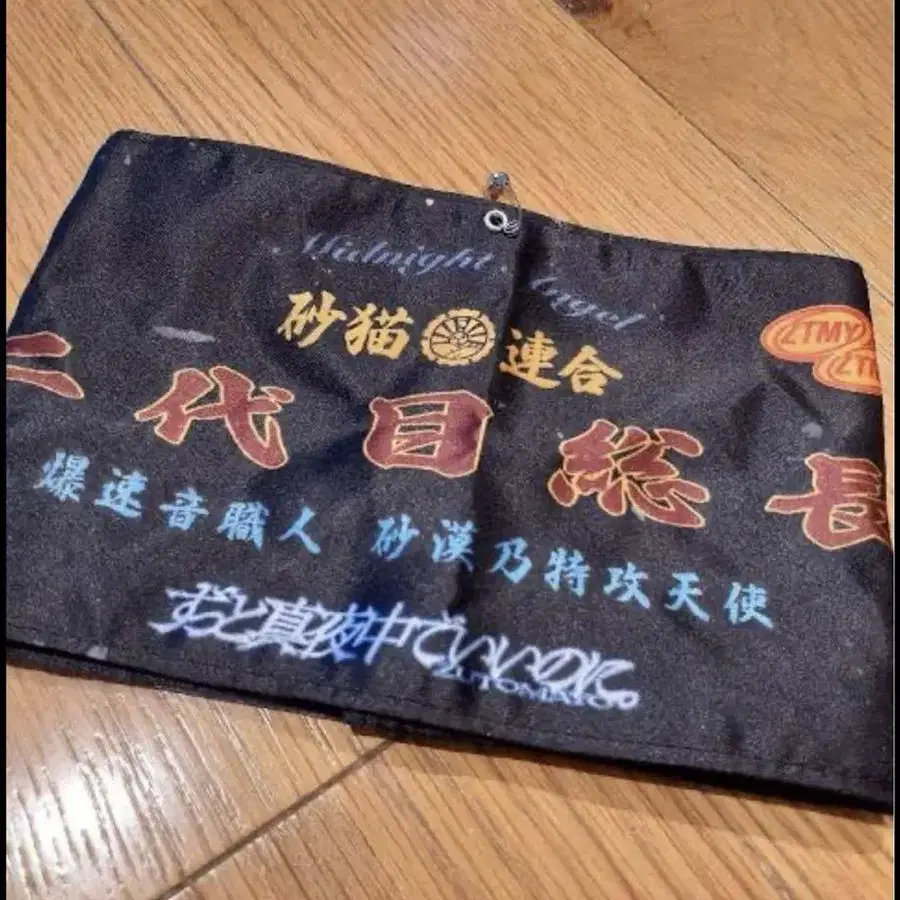 Midnight Angel
砂猫連合
ZTMY
ZTM
二代目総長
爆速音職人 砂漠乃特攻天使
ずっと真夜中でいいのに。
ZUTOMAYO